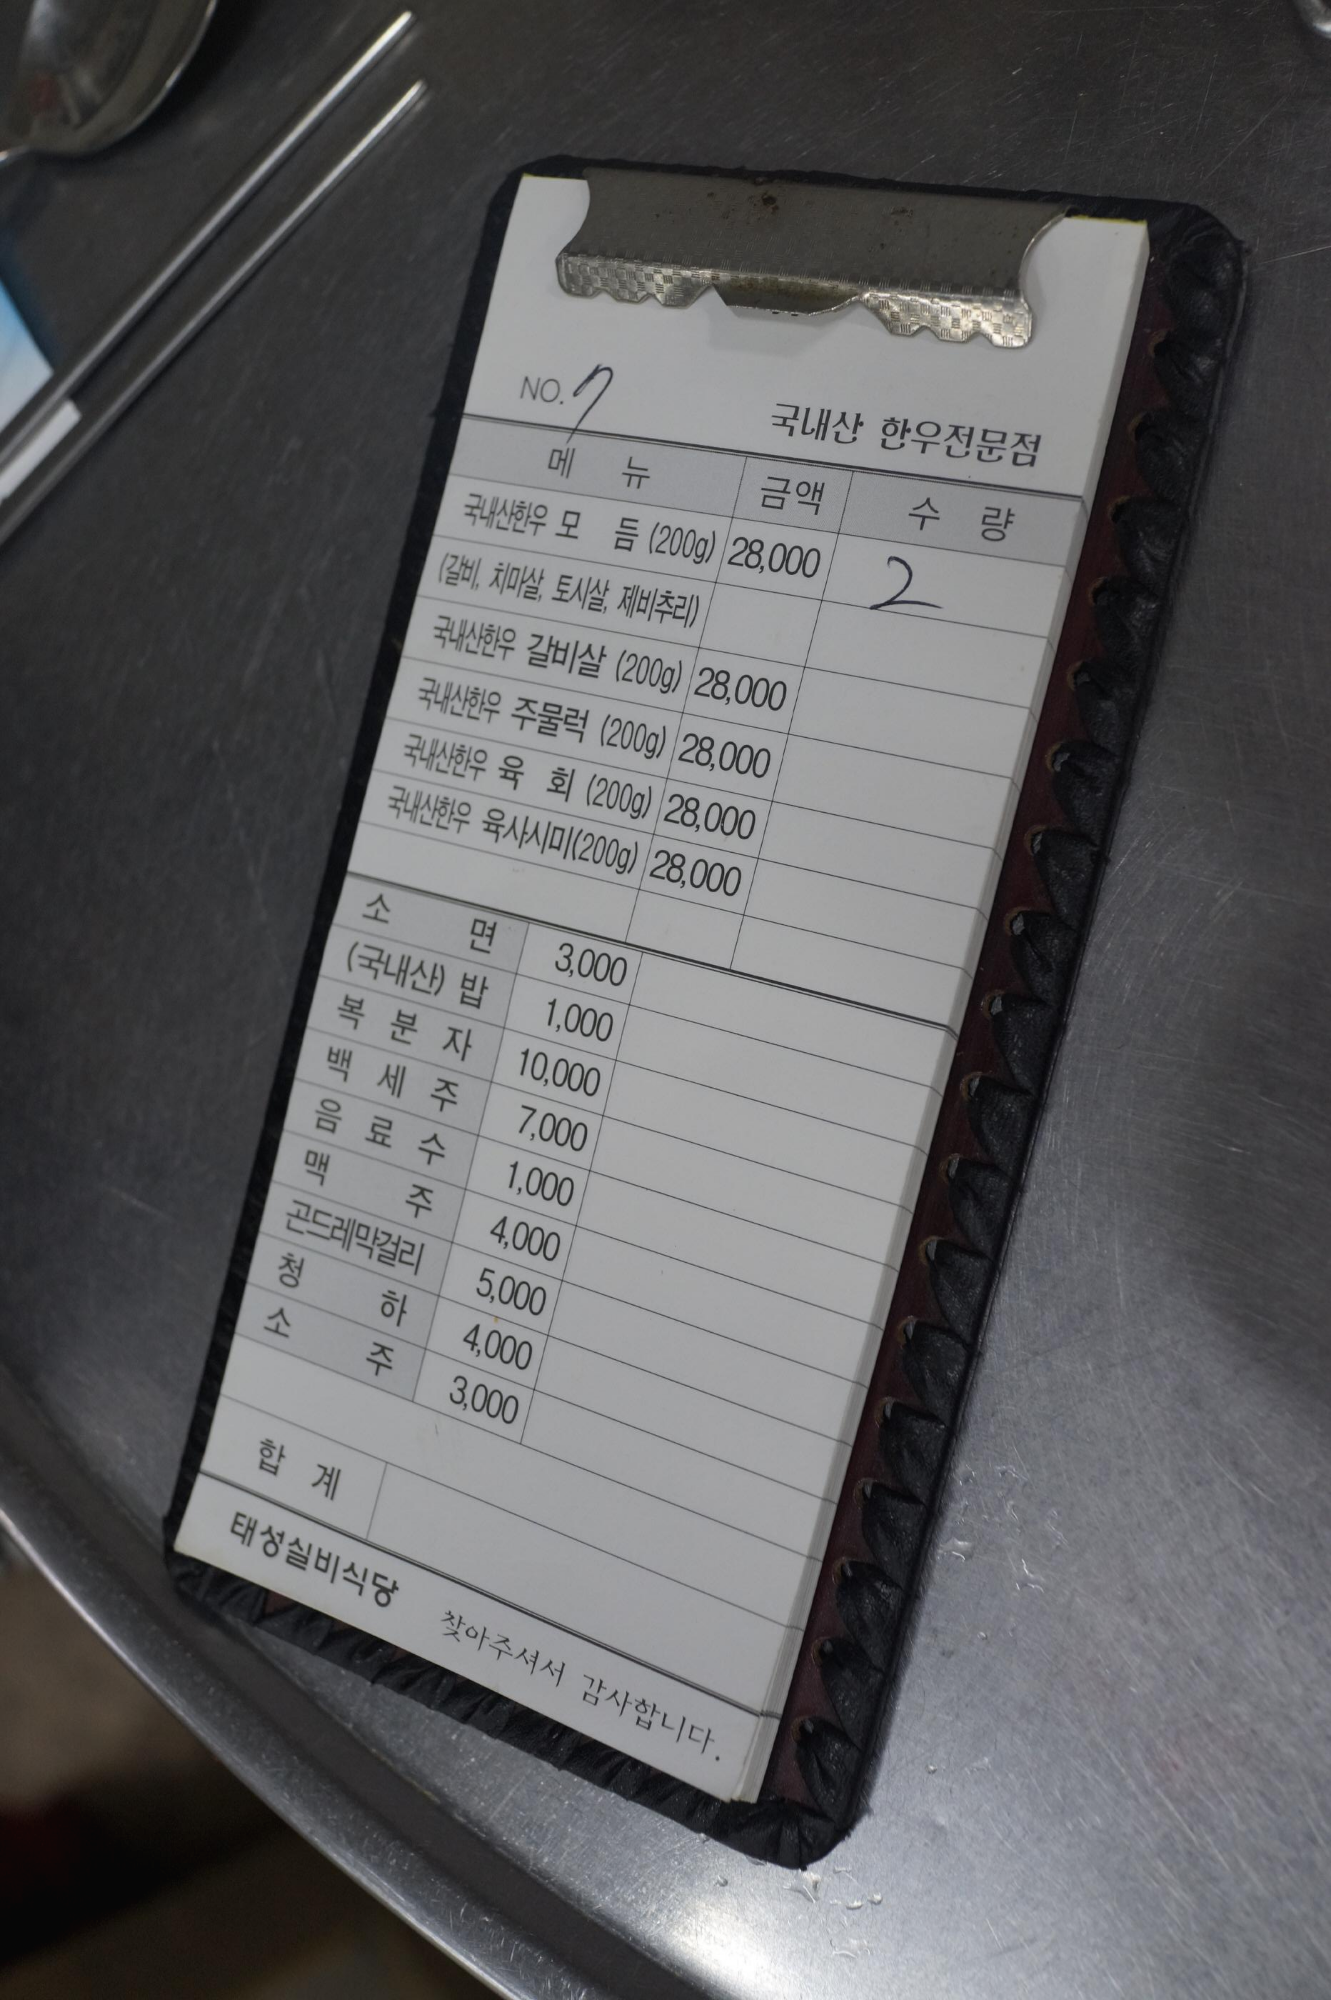 NO. 7
국내산 한우전문점
메 뉴 금액 수 량
국내산한우 모 듬 (200g) 28,000 2
(갈비, 치마살, 토시살, 제비추리)
국내산한우 갈비살 (200g) 28,000
국내산한우 주물럭 (200g) 28,000
국내산한우 육 회 (200g) 28,000
국내산한우 육사시미(200g) 28,000
소 면 3,000
(국내산) 밥 1,000
복 분 자 10,000
백 세 주 7,000
음 료 수 1,000
맥 주 4,000
곤드레막걸리 5,000
청 하 4,000
소 주 3,000
합 계
태성실비식당 찾아주셔서 감사합니다.